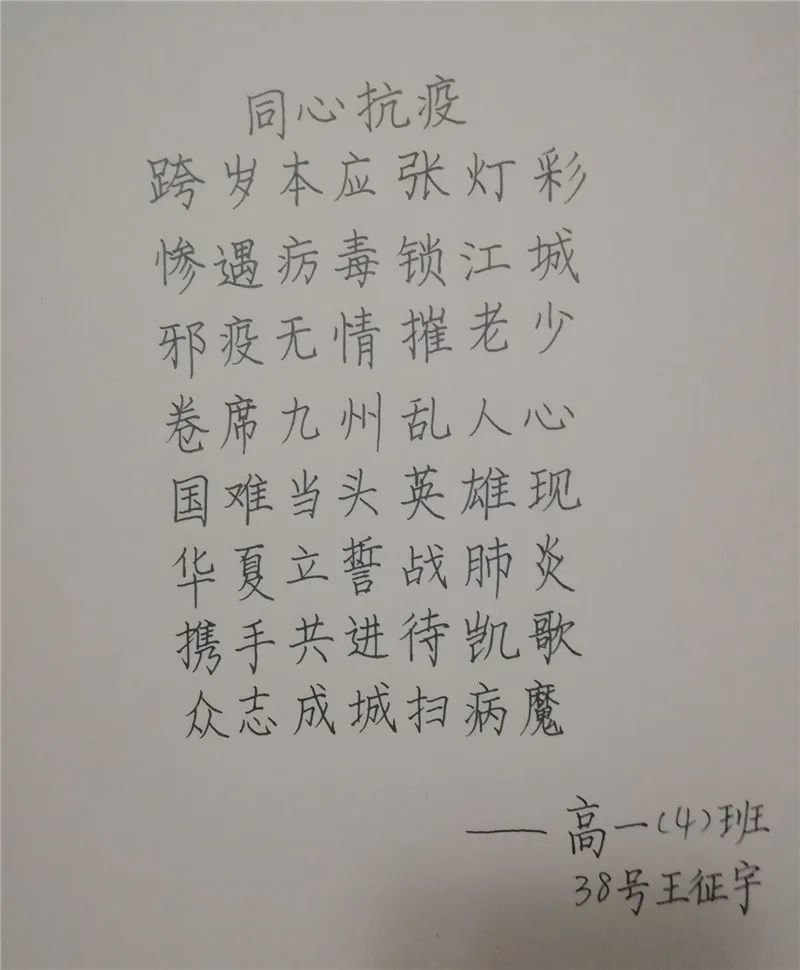 同心抗疫
跨岁本应张灯彩
惨遇疠毒锁江城
邪疫无情摧老少
卷席九州乱人心
国难当头英雄现
华夏立誓战肺炎
携手共进待凯歌
众志成城扫病魔
——高一(4)班
38号王征宇